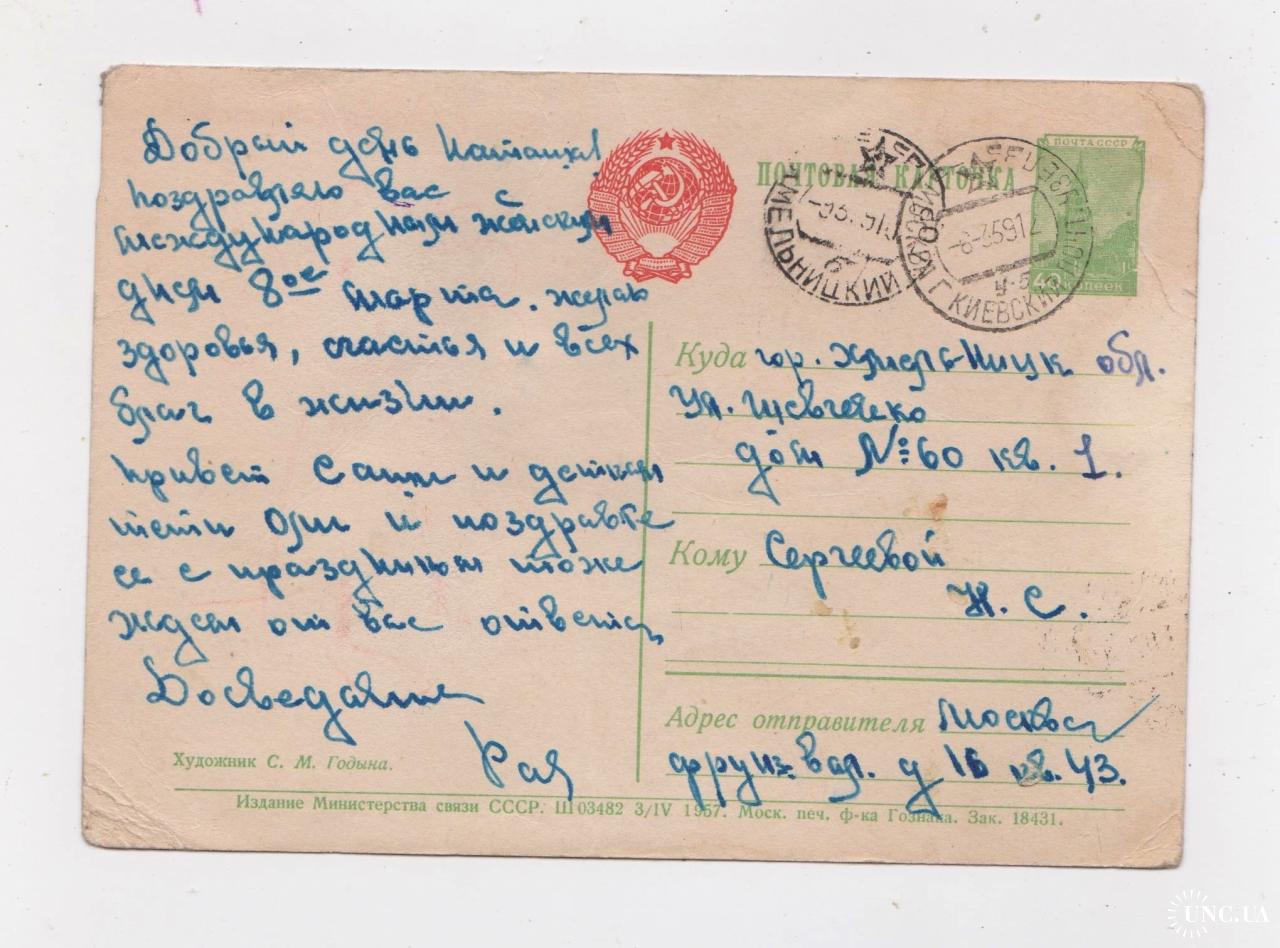 Добрый день Наташка!
поздравляю вас с
международным женским
днем 8ое марта. желаю
здоровья, счастья и всех
благ в жизни.
привет Саши и деткам
тети Оли и поздравте
ее с праздником тоже
ждем от вас ответа,
Досведания
Рая
Художник С. М. Годына.
ПОЧТОВАЯ КАРТОЧКА
ПОЧТА СССР
40 копеек
ХМЕЛЬНИЦКИЙ
КИЕВСКИЙ
Куда гор. Хмельницк обл.
ул. Шевченко
дом №60 кв. 1.
Кому Сергеевой
Н. С.
Адрес отправителя Москва
фрунз вал. д 16 кв. 43.
Издание Министерства связи СССР. Ш03482 3/IV 1957. Моск. печ. ф-ка Гознака. Зак. 18431.
UNC.UA